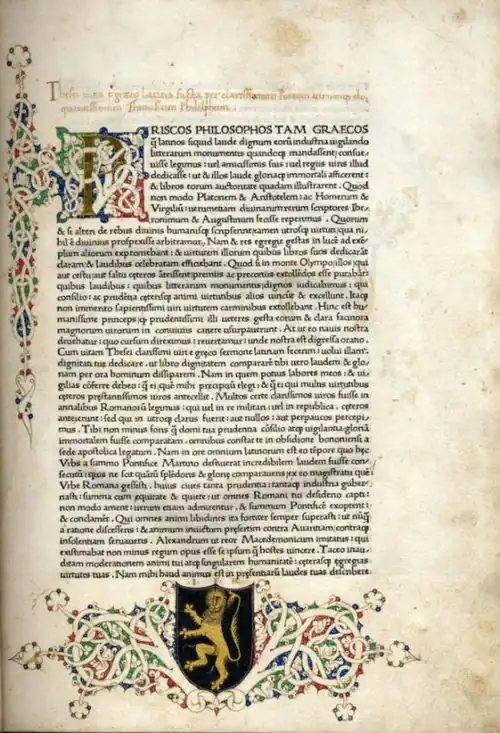 Thesei uita e græco latina facta per clarissimum
quentissimum Franciscum Philelphum.
PRISCOS PHILOSOPHOS TAM GRAECOS
q̃ latinos siquid laude dignum eorũ industria uigilando
litterarum monumentis quandoq; mandassent; consue
uisse legimus: uel amicissimis suis: uel regiis uiris illud
dedicasse: ut & illos laude gloriaq; immortali afficerent:
& libros eorum auctoritate quadam illustrarent. Quod
non modo Platonem & Aristotelem: ac Homerum &
Virgiliũ: uerumetiam diuinarum rerum scriptores Hie
ronimum & Augustinum fecisse reperimus. Quorum
& si alteri de rebus diuinis humanisq; scripserint; tamen utrosq; uirtuti; qua ni
hil ẽ diuinius prospexisse arbitramur. Nam & res egregie gestas in lucẽ ad exẽ
plum aliorum expromebant: & uirtutem illorum quibus libros suos dedicarãt
claram: & laudibus celebratam efficiebant. Quod si in monte Olympo; illos; qui
aut cestu; aut saltu cęteros ãteissent; premiis ac preconiis extollẽdos esse putabãt:
quibus laudibus: quibus litterarum monumentis; dignos iudicabimus: qui
consilio: ac prudẽtia cęterisq; animi uirtutibus alios uincũt & excellunt. Itaq;
non immerito sapientissimi uiri uirtutem carminibus extollebant. Hinc est hu
manissime princeps; q; prudentissimi illi ueteres gesta eorum & clara facinora
magnorum uirorum in conuiuiis canere usurpauerunt. At ut eo nauis nostra
deuehatur: quo cursum direximus: reuertamur: unde nostra est digressa oratio.
Cum uitam Thesei clarissimi uiri e gręco sermone latinam fecerim: uolui illam
dignitati tuę dedicare. ut libro dignitatem compararẽ tibi uero laudem & glo
riam per ora hominum dissiparem. Nam in quem potius labores meos: & ui
gilias cõferre debeo: q̃ ei; quẽ mihi pręcipuũ elegi: & q̃ ei; qui multis uirtutibus
cęteros pręstantissimos uiros antecellit. Multos certe clarissimos uiros fuisse in
annalibus Romanorũ legimus: qui uel in re militari: uel in republica: cęteros
anteierunt: sed qui in utroq; clarus fuerit: aut nullos: aut perpaucos percepi
mus. Tibi non minus foris q̃ domi tua prudentia cõsilio atq; uigilantia; gloriã
immortalem fuisse comparatam: omnibus constat te in obsidione bononiensi a
sede apostolica legatum. Nam in ore omnium latinorum est eo tẽpore quo hęc
Vrbs a summo Pontifice Martino destituerat incredibilem laudem fuisse con
secutũ: quis ne scit quãtũ splẽdoris & glorię comparauens; ex eo magistratu quẽ
Vrbe Romana gessisti. huius ciuis tanta prudentia: tantaq; industria guber
nasti: summa cum equitate & quiete: ut omnes Romani tui desiderio capti:
non modo ament: uerum etiam admirentur. & summum Pontificẽ exoptent:
& conclamẽt. Qui omnes animi libidines ita fortiter semper superasti: ut nũq̃
a ratione discesseris: & animum inuictum presertim contra Auaritiam; contraq;
insolentiam seruaueris. Alexandrum ut reor Macedemonicum imitatus: qui
existimabat non minus regium opus esse se ipsum q̃ hostes uincere. Taceo inau
ditam moderationem animi tui atq; singularem humanitatẽ: cęterasq; egregias
uirtutes tuas. Nam mihi haud animus est in presentiarũ laudes tuas describere